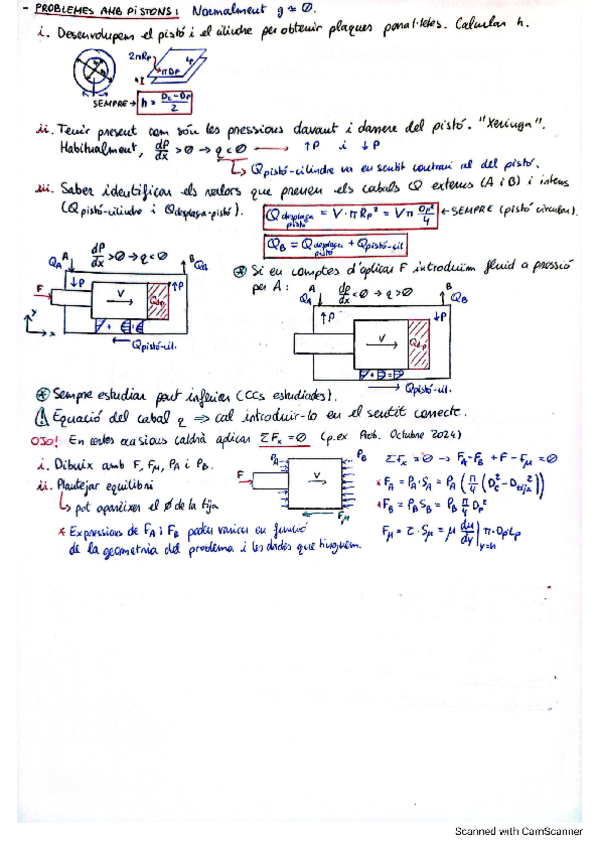 - PROBLEMES AMB PISTONS: Normalment g ≈ Ø.
i. Desenvolupem el pistó i el cilindre per obtenir plaques paral·leles. Calcular h.
2πRp
Lp
πDp
SEMPRE → h = (Dc - Dp)/2
ii. Tenir present com són les pressions davant i darrere del pistó. "Xeringa".
Habitualment, dP/dx > Ø → q < Ø → ↑P i ↓P
↳ Qpistó-cilindre va en sentit contrari al del pistó.
iii. Saber identificar els valors que prenen els cabals Q externs (A i B) i interns
(Qpistó-cilindre i Qdesplaça-pistó). Qdesplaça pistó = V·πRp² = Vπ Dp²/4 ← SEMPRE (pistó circular).
QB = Qdesplaça pistó + Qpistó-cil
A QA dP/dx > Ø → q < Ø B QB
↓P ↑P
F V Qdp
y x
← Qpistó-cil.
⊛ Si en comptes d'aplicar F introduïm fluid a pressió
per A:
A QA dP/dx < Ø → q > Ø B QB
↑P ↓P
V Qdp
→ Qpistó-cil.
⊛ Sempre estudiar part inferior (CCs estudiades).
⚠ Equació del cabal q ⇒ cal introduir-lo en el sentit correcte.
OJO! En certes ocasions caldrà aplicar ΣFx = Ø (p.ex Prob. Octubre 2024)
i. Dibuix amb F, Fμ, PA i PB.
ii. Plantejar equilibri
↳ pot aparèixer el Ø de la tija
* Expressions de FA i FB poden variar en funció
de la geometria del problema i les dades que tinguem.
PA PB
F V
Fμ
ΣFx = Ø → FA - FB + F - Fμ = Ø
* FA = PA·SA = PA (π/4 (Dc² - Dtija²))
* FB = PB SB = PB π/4 Dp²
Fμ = τ·Sμ = μ du/dy|y=h π·Dp Lp
Scanned with CamScanner